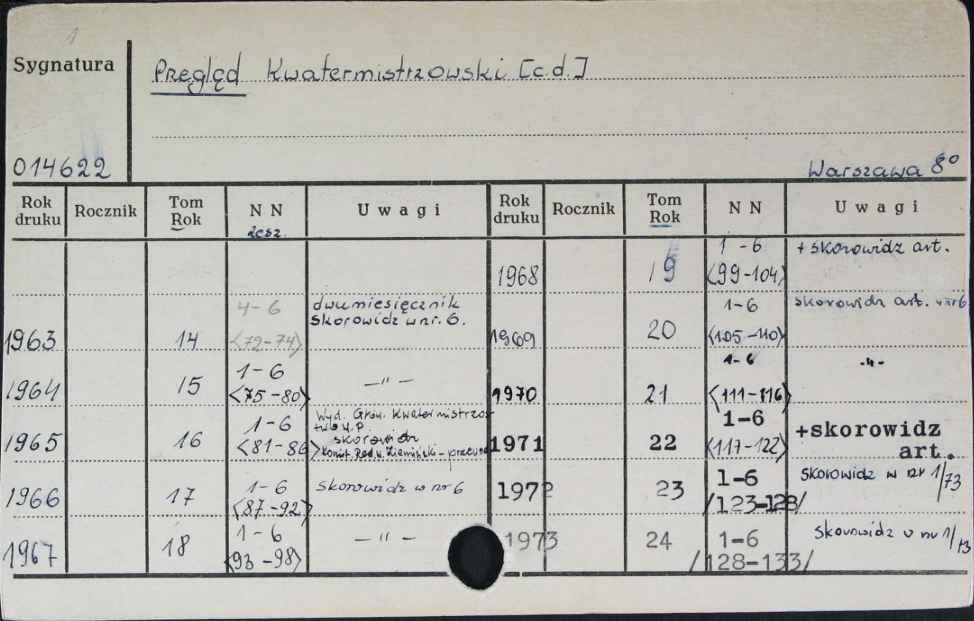 1
Sygnatura
Pregląd Kwatermistrzowski [c.d.]
014622
Warszawa 8°
Rok druku Rocznik Tom Rok NN zesz. Uwagi Rok druku Rocznik Tom Rok NN Uwagi
1968 19 1-6 <99-104> + skorowidz art.
1963 14 4-6 <72-74> dwumiesięcznik skorowidz w nr. 6. 1969 20 1-6 <105-110> skorowidz art. w nr 6
1964 15 1-6 <75-80> —"— 1970 21 1-6 <111-116> -"-
1965 16 1-6 <81-86> Wyd. Głów. Kwatermistrzostwo W.P. skorowidz 1971 22 1-6 <117-122> +skorowidz art.
1966 17 1-6 <87-92> skorowidz w nr 6 1972 23 1-6 /123-128/ skorowidz w nr 1/73
1967 18 1-6 <93-98> —"— 1973 24 1-6 /128-133/ skorowidz w nr 1/73